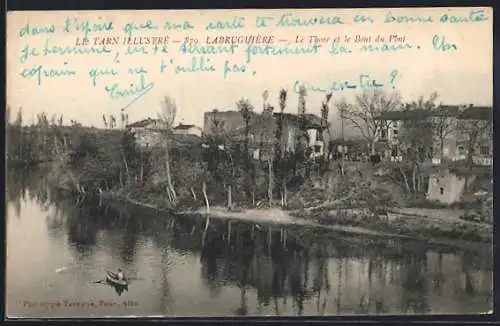 dans l'espoir que ma carte te trouvera en bonne santé
LE TARN ILLUSTRÉ — 879. LABRUGUIÈRE — Le Thoré et le Bout du Pont
je termine, en te serrant fortement la main. Un
copain qui ne t'oublie pas,
Phototypie Tarnaise, Poux, Albi